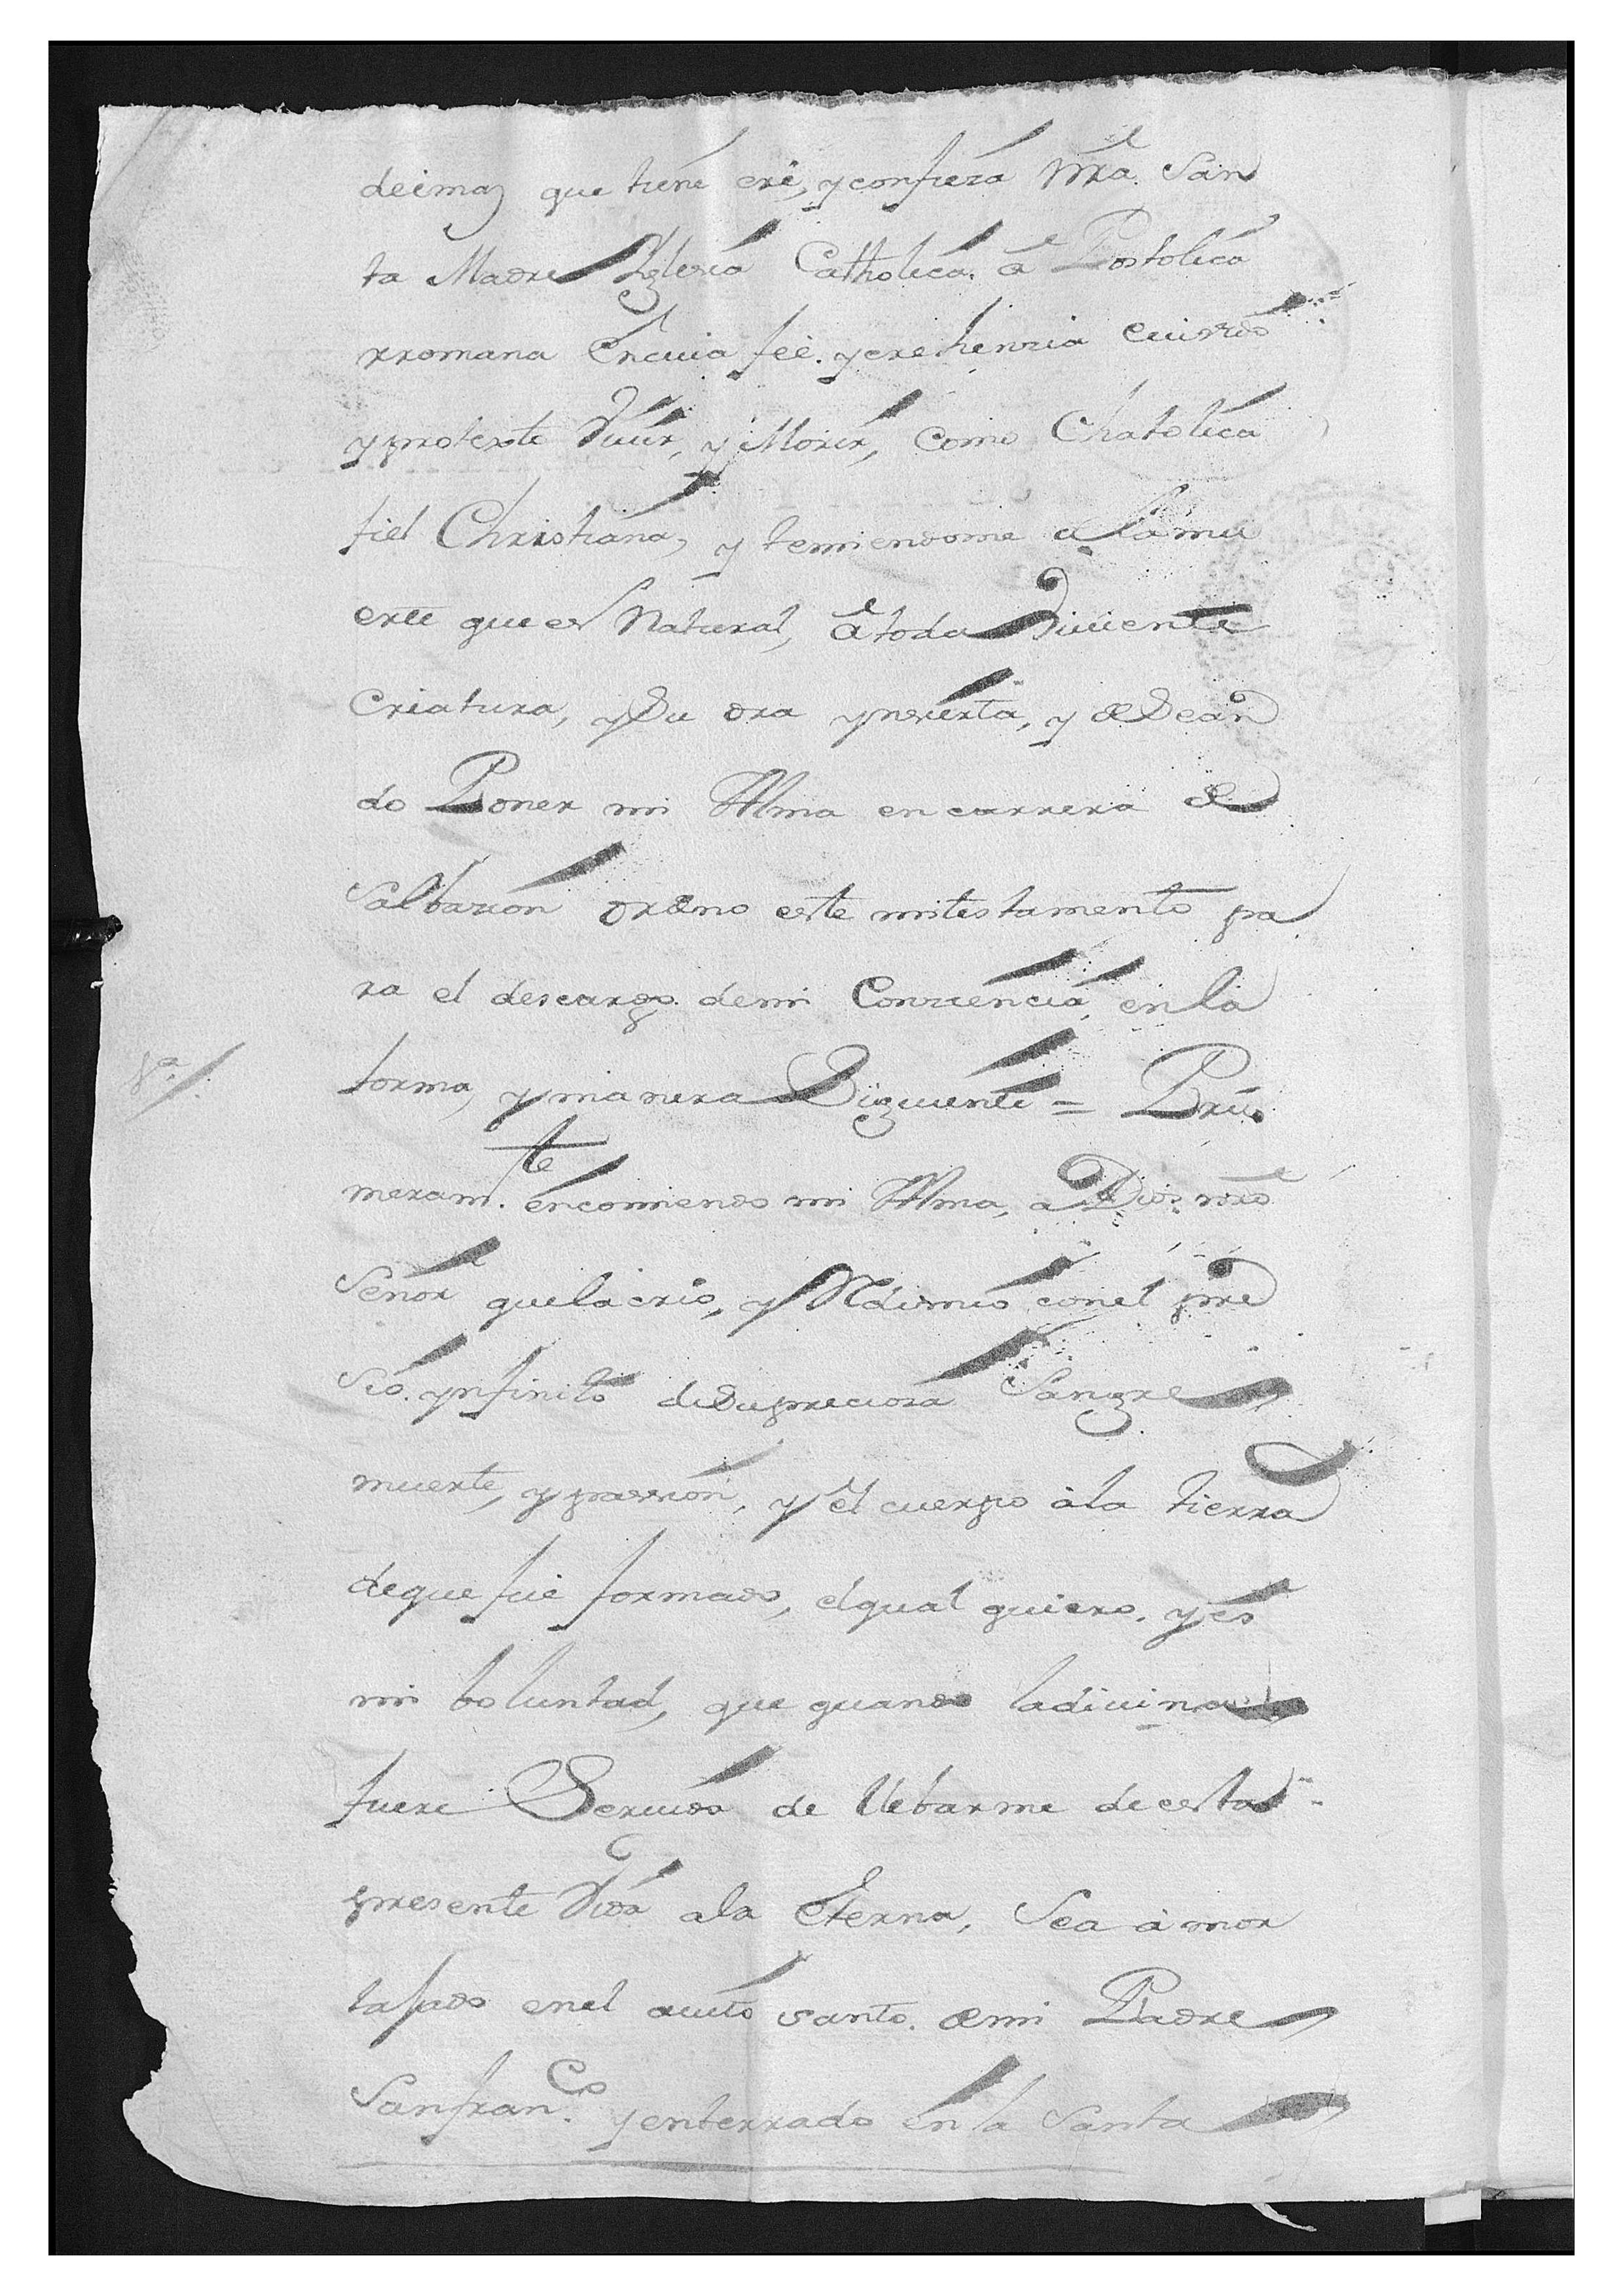 demas que tiene cré, y confieza Nrâ. San
ta Madre Yglesia Catholica. â Postolica
rromana Encuia feè. y crehenzia e viuido
y protexto Viuir, y Morir, Como Chatolica
fiel Christiana, y temiendome a la mu
erte que es Natural, â toda Viuiente
Criatura, y Su ora ynsierta, y deSean
do Poner mi Alma en carrera de
Salbazion ordeno este mi testamento pa
ra el descargo. de mi Conziencia, en la
forma, y manera Siguiente = Pri.
1ª
meram.te encomiendo mi Alma, a Dios nrô
Señor que la crio, y Redimio con el pre
Sio. ynfinito de Su preciosa Sangre
muerte, y passion, y el cuerpo à la tierra
de que fuè formado, el qual quiero. y es
mi boluntad, que quando la diuina
fuere Seruida de llebarme de esta
presente Vida a la Eterna, Sea à mor
tajado en el auito santo. de mi Padre
San fran.co y enterrado en la Santa